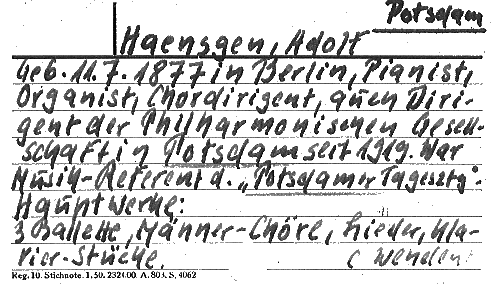 Potsdam
Haensgen, Adolf
Geb. 11.7.1877 in Berlin, Pianist,
Organist, Chordirigent, auch Diri-
gent der Philharmonischen Gesell-
schaft in Potsdam seit 1919. War
Musik-Referent d. „Potsdamer Tagesztg".
Hauptwerke:
3 Ballette, Männer-Chöre, Lieder, Kla-
vier-Stücke.
Reg. 10. Stichnote. 1. 50. 2324.00. A. 803. S. 4062